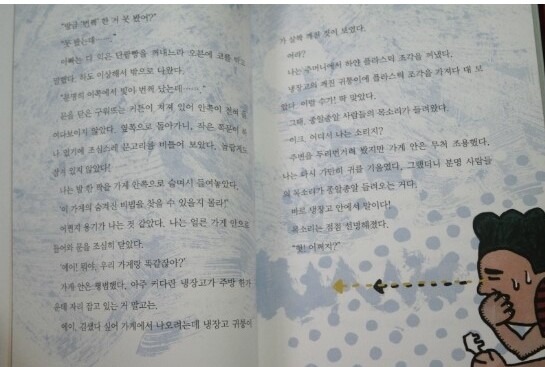 "방금 '번쩍' 한 거 못 봤어?"
"못 봤는데……."
아빠는 다 익은 단팥빵을 꺼내느라 오븐에 코를 박고
있었다. 나는 이상해서 밖으로 나왔다.
"분명히 이쪽에서 빛이 번쩍 났는데……."
문을 닫은 구워뜨는 커튼이 쳐져 있어 안쪽이 전혀 들
여다보이지 않았다. 옆쪽으로 돌아가니, 작은 쪽문이 하
나 있기에 조심스레 문고리를 비틀어 보았다. 놀랍게도
잠겨 있지 않았다!
나는 발 한 짝을 가게 안쪽으로 슬며시 들여놓았다.
'이 가게의 숨겨진 비법을 찾을 수 있을지 몰라!'
어쩐지 용기가 나는 것 같았다. 나는 얼른 가게 안으로
들어와 문을 조심히 닫았다.
'에이! 뭐야, 우리 가게랑 똑같잖아?'
가게 안은 평범했다. 아주 커다란 냉장고가 주방 한가
운데 자리 잡고 있는 거 말고는.
에이, 김샜다 싶어 가게에서 나오려는데 냉장고 귀퉁이
가 살짝 깨진 것이 보였다.
어라?
나는 주머니에서 하얀 플라스틱 조각을 꺼냈다.
냉장고의 깨진 귀퉁이에 플라스틱 조각을 가져다 대 보
았다. 이럴 수가! 딱 맞았다.
그때, 중얼중얼 사람들의 목소리가 들려왔다.
이크, 어디서 나는 소리지?
주변을 두리번거려 봤지만 가게 안은 무척 조용했다.
나는 다시 가만히 귀를 기울였다. 그랬더니 분명 사람들
의 목소리가 중얼중얼 들려오는 거다.
바로 냉장고 안에서 말이다!
목소리는 점점 선명해졌다.
"형! 어쩌지?"